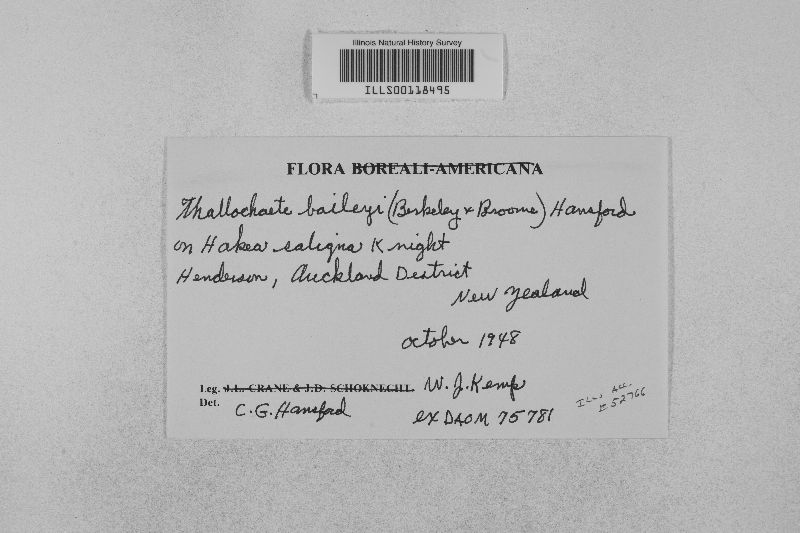 Illinois Natural History Survey
ILLS00118495
FLORA BOREALI-AMERICANA
Thallochaete baileyi (Berkeley & Broome) Hansford
on Hakea saligna Knight
Henderson, Auckland District
New Zealand
October 1948
Leg. J.L. CRANE & J.D. SCHOKNECHT. W. J. Kemp
Det. C. G. Hansford
ex DAOM 75781
ILLS Acc.
52766